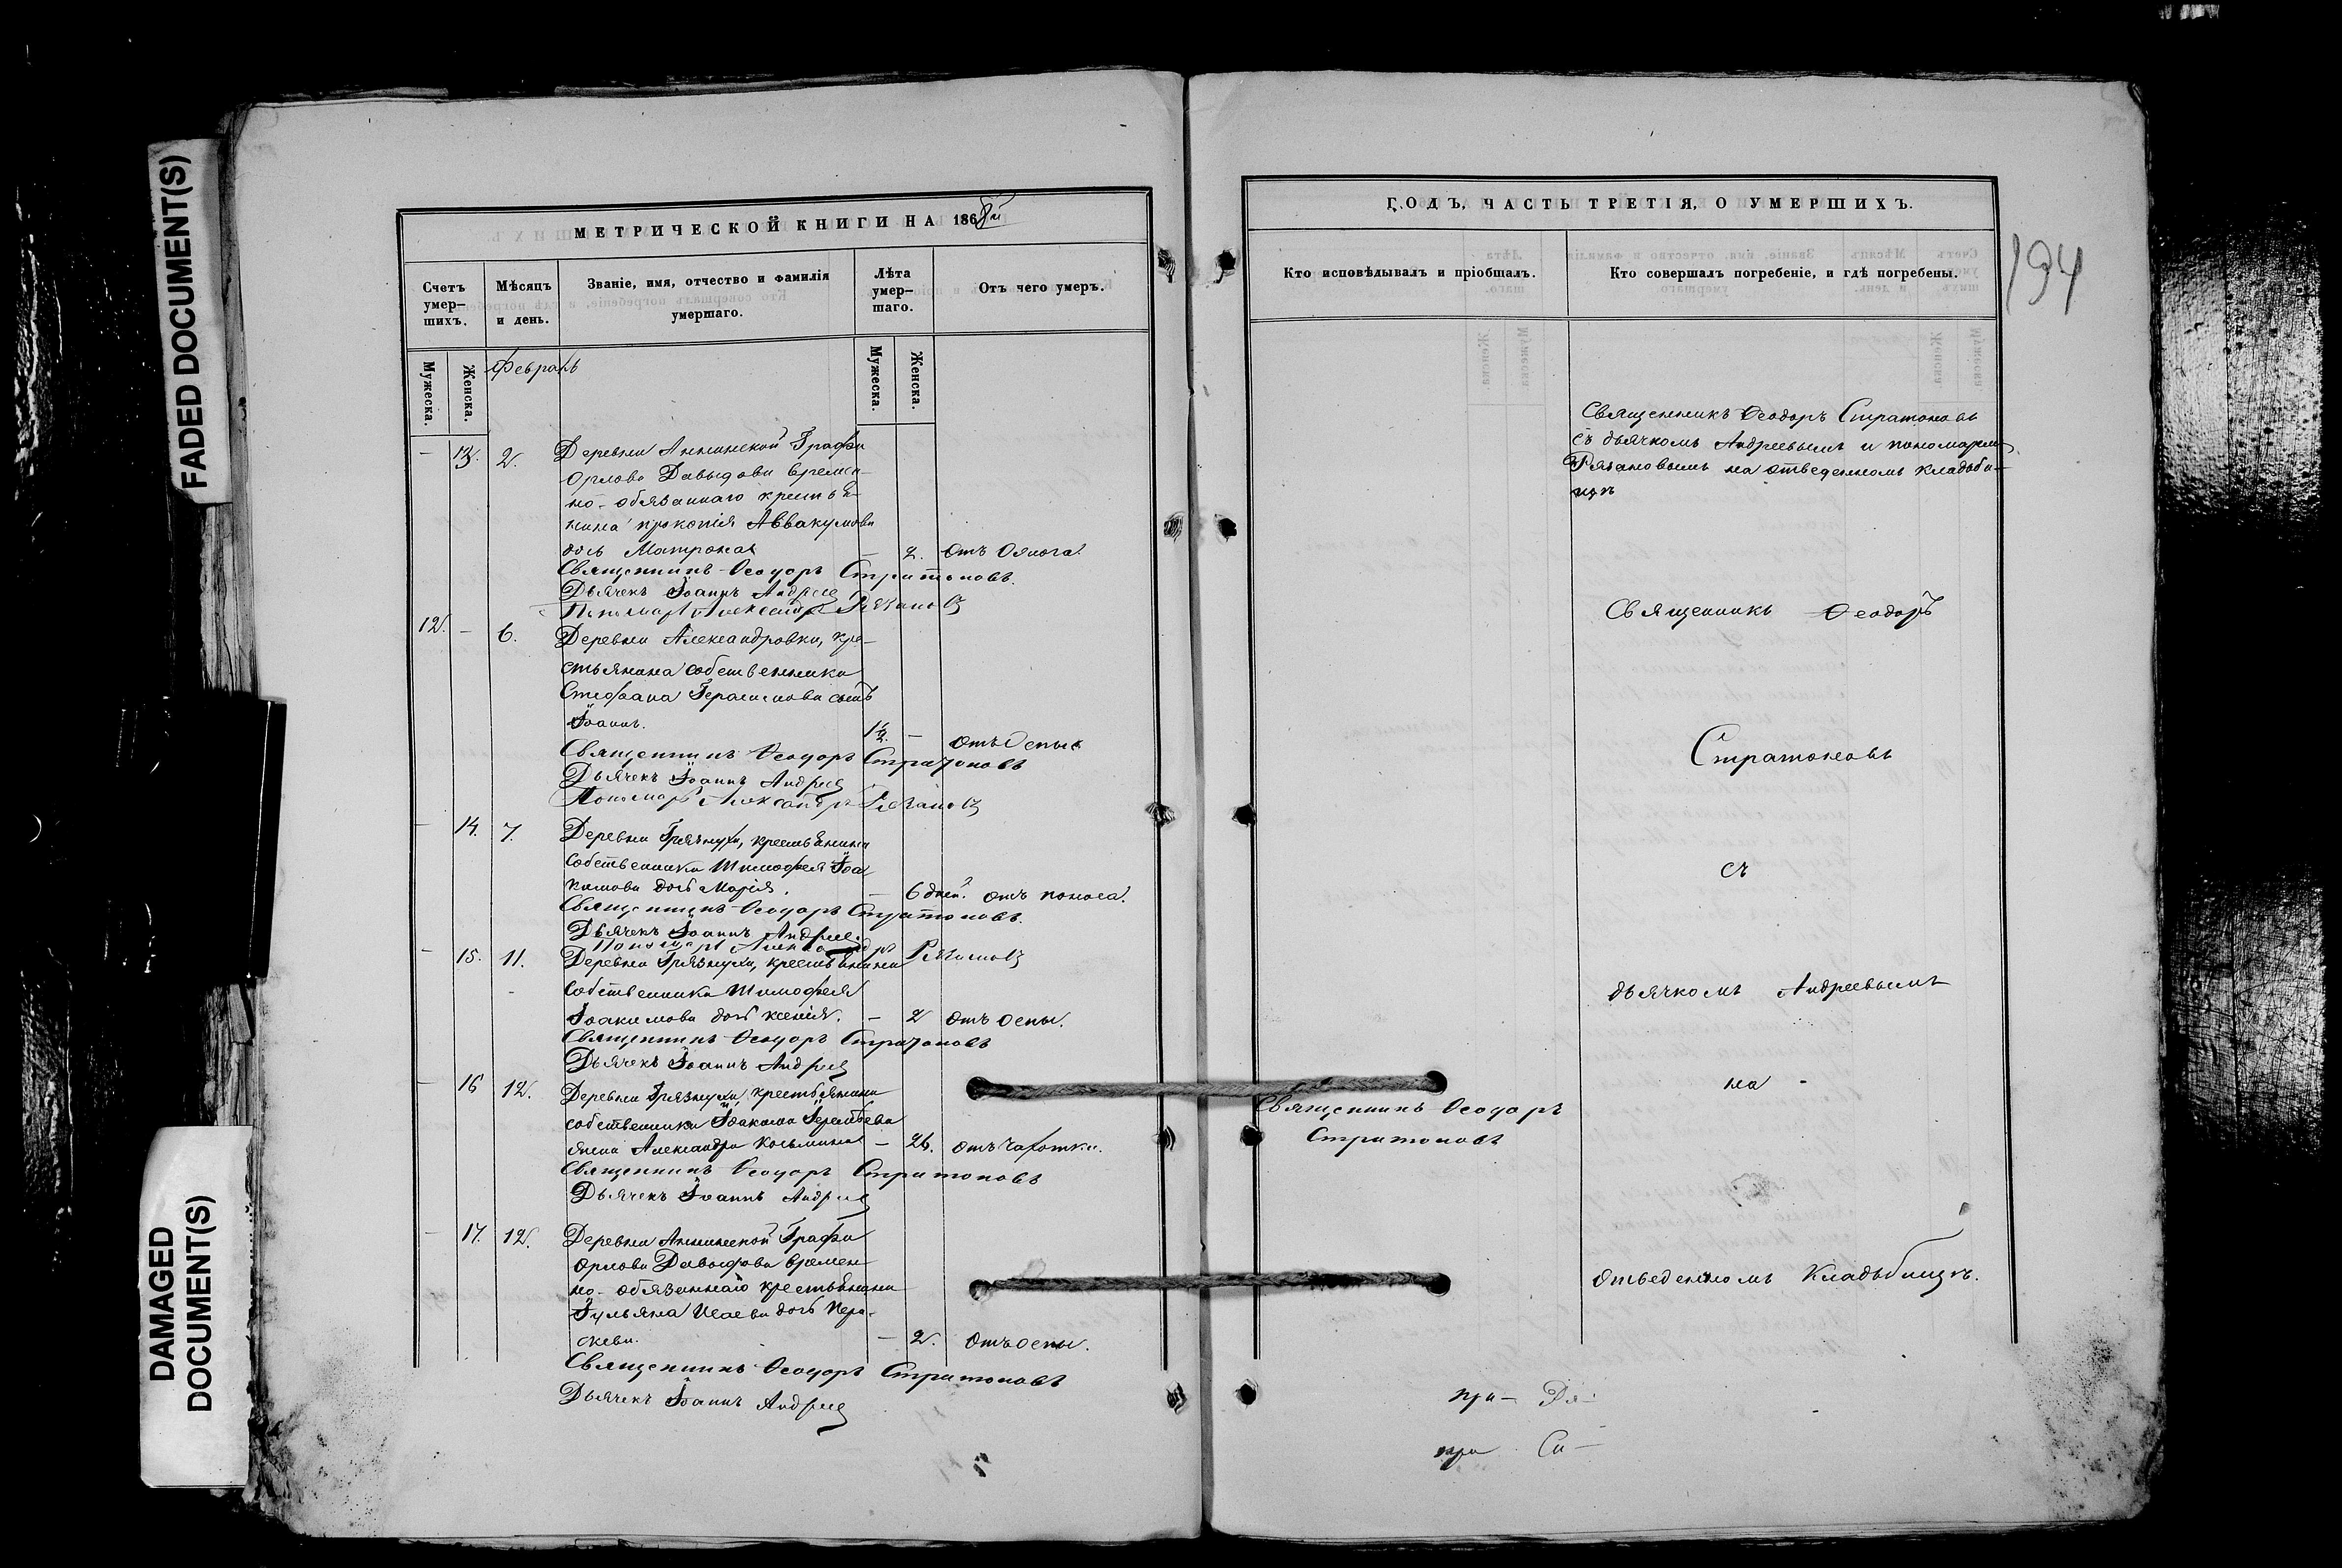 FADED DOCUMENT(S)
DAMAGED DOCUMENT(S)
МЕТРИЧЕСКОЙ КНИГИ НА 1868й
Счетъ умер-шихъ.
Мѣсяцъ и день.
Званіе, имя, отчество и фамилія умершаго.
Лѣта умер-шаго.
Отъ чего умеръ.
Мужеска.
Женска.
Мужеска.
Женска.
Февраль
– 13. 2. Деревни Аннинской Графа
Орлова Давыдова времен-
но-обязаннаго крестья-
нина Прокопія Аввакумова
дочь Матрона – 2. отъ
Священникъ Ѳеодоръ Стратоновъ.
Дьячекъ Іоаннъ Андреев
Пономарь Александръ Рязановъ
12. – 6. Деревни Александровки, кре-
стьянина собственника
Стефана Герасимова сынъ
Іоаннъ. 1½. – отъ оспы
Священникъ Ѳеодоръ Стратоновъ
Дьячекъ Іоаннъ Андреев
Пономарь Александръ Рязановъ
– 14. 7. Деревни Грязнухи, крестьянина
собственника Тимофея Іоа
кимова дочь Марія. – 6 дней. отъ поноса.
Священникъ Ѳеодоръ Стратоновъ.
Дьячекъ Іоаннъ Андреев.
Пономарь Александръ Рязановъ
– 15. 11. Деревни Грязнухи, крестьянина
собственника Тимофея
Іоакимова дочь Ксенія. – 2 отъ оспы.
Священникъ Ѳеодоръ Стратоновъ
Дьячекъ Іоаннъ Андреев
– 16 12. Деревни Грязнухи, крестьянина
собственника Іоакима
жена Александра Косьмина – 26. отъ чахотки.
Священникъ Ѳеодоръ Стратоновъ
Дьячекъ Іоаннъ Андреев
– 17. 12. Деревни Аннинской Графа
Орлова Давыдова времен
но-обязаннаго крестьянина
Іульяна Исаева дочь Пера-
скева. – 2. отъ оспы.
Священникъ Ѳеодоръ Стратоновъ
Дьячекъ Іоаннъ Андреев
ГОДЪ, ЧАСТЬ ТРЕТІЯ, О УМЕРШИХЪ.
194
Кто исповѣдывалъ и пріобщалъ.
Кто совершалъ погребеніе, и гдѣ погребены.
Священникъ Ѳеодоръ Стратоновъ
съ дьячкомъ Андреевымъ и пономаремъ
Рязановымъ на отведенномъ кладби-
щѣ
Священникъ Ѳеодоръ
Стратоновъ
съ
дьячкомъ Андреевымъ
на
Священникъ Ѳеодоръ
Стратоновъ
отведенномъ кладбищѣ.